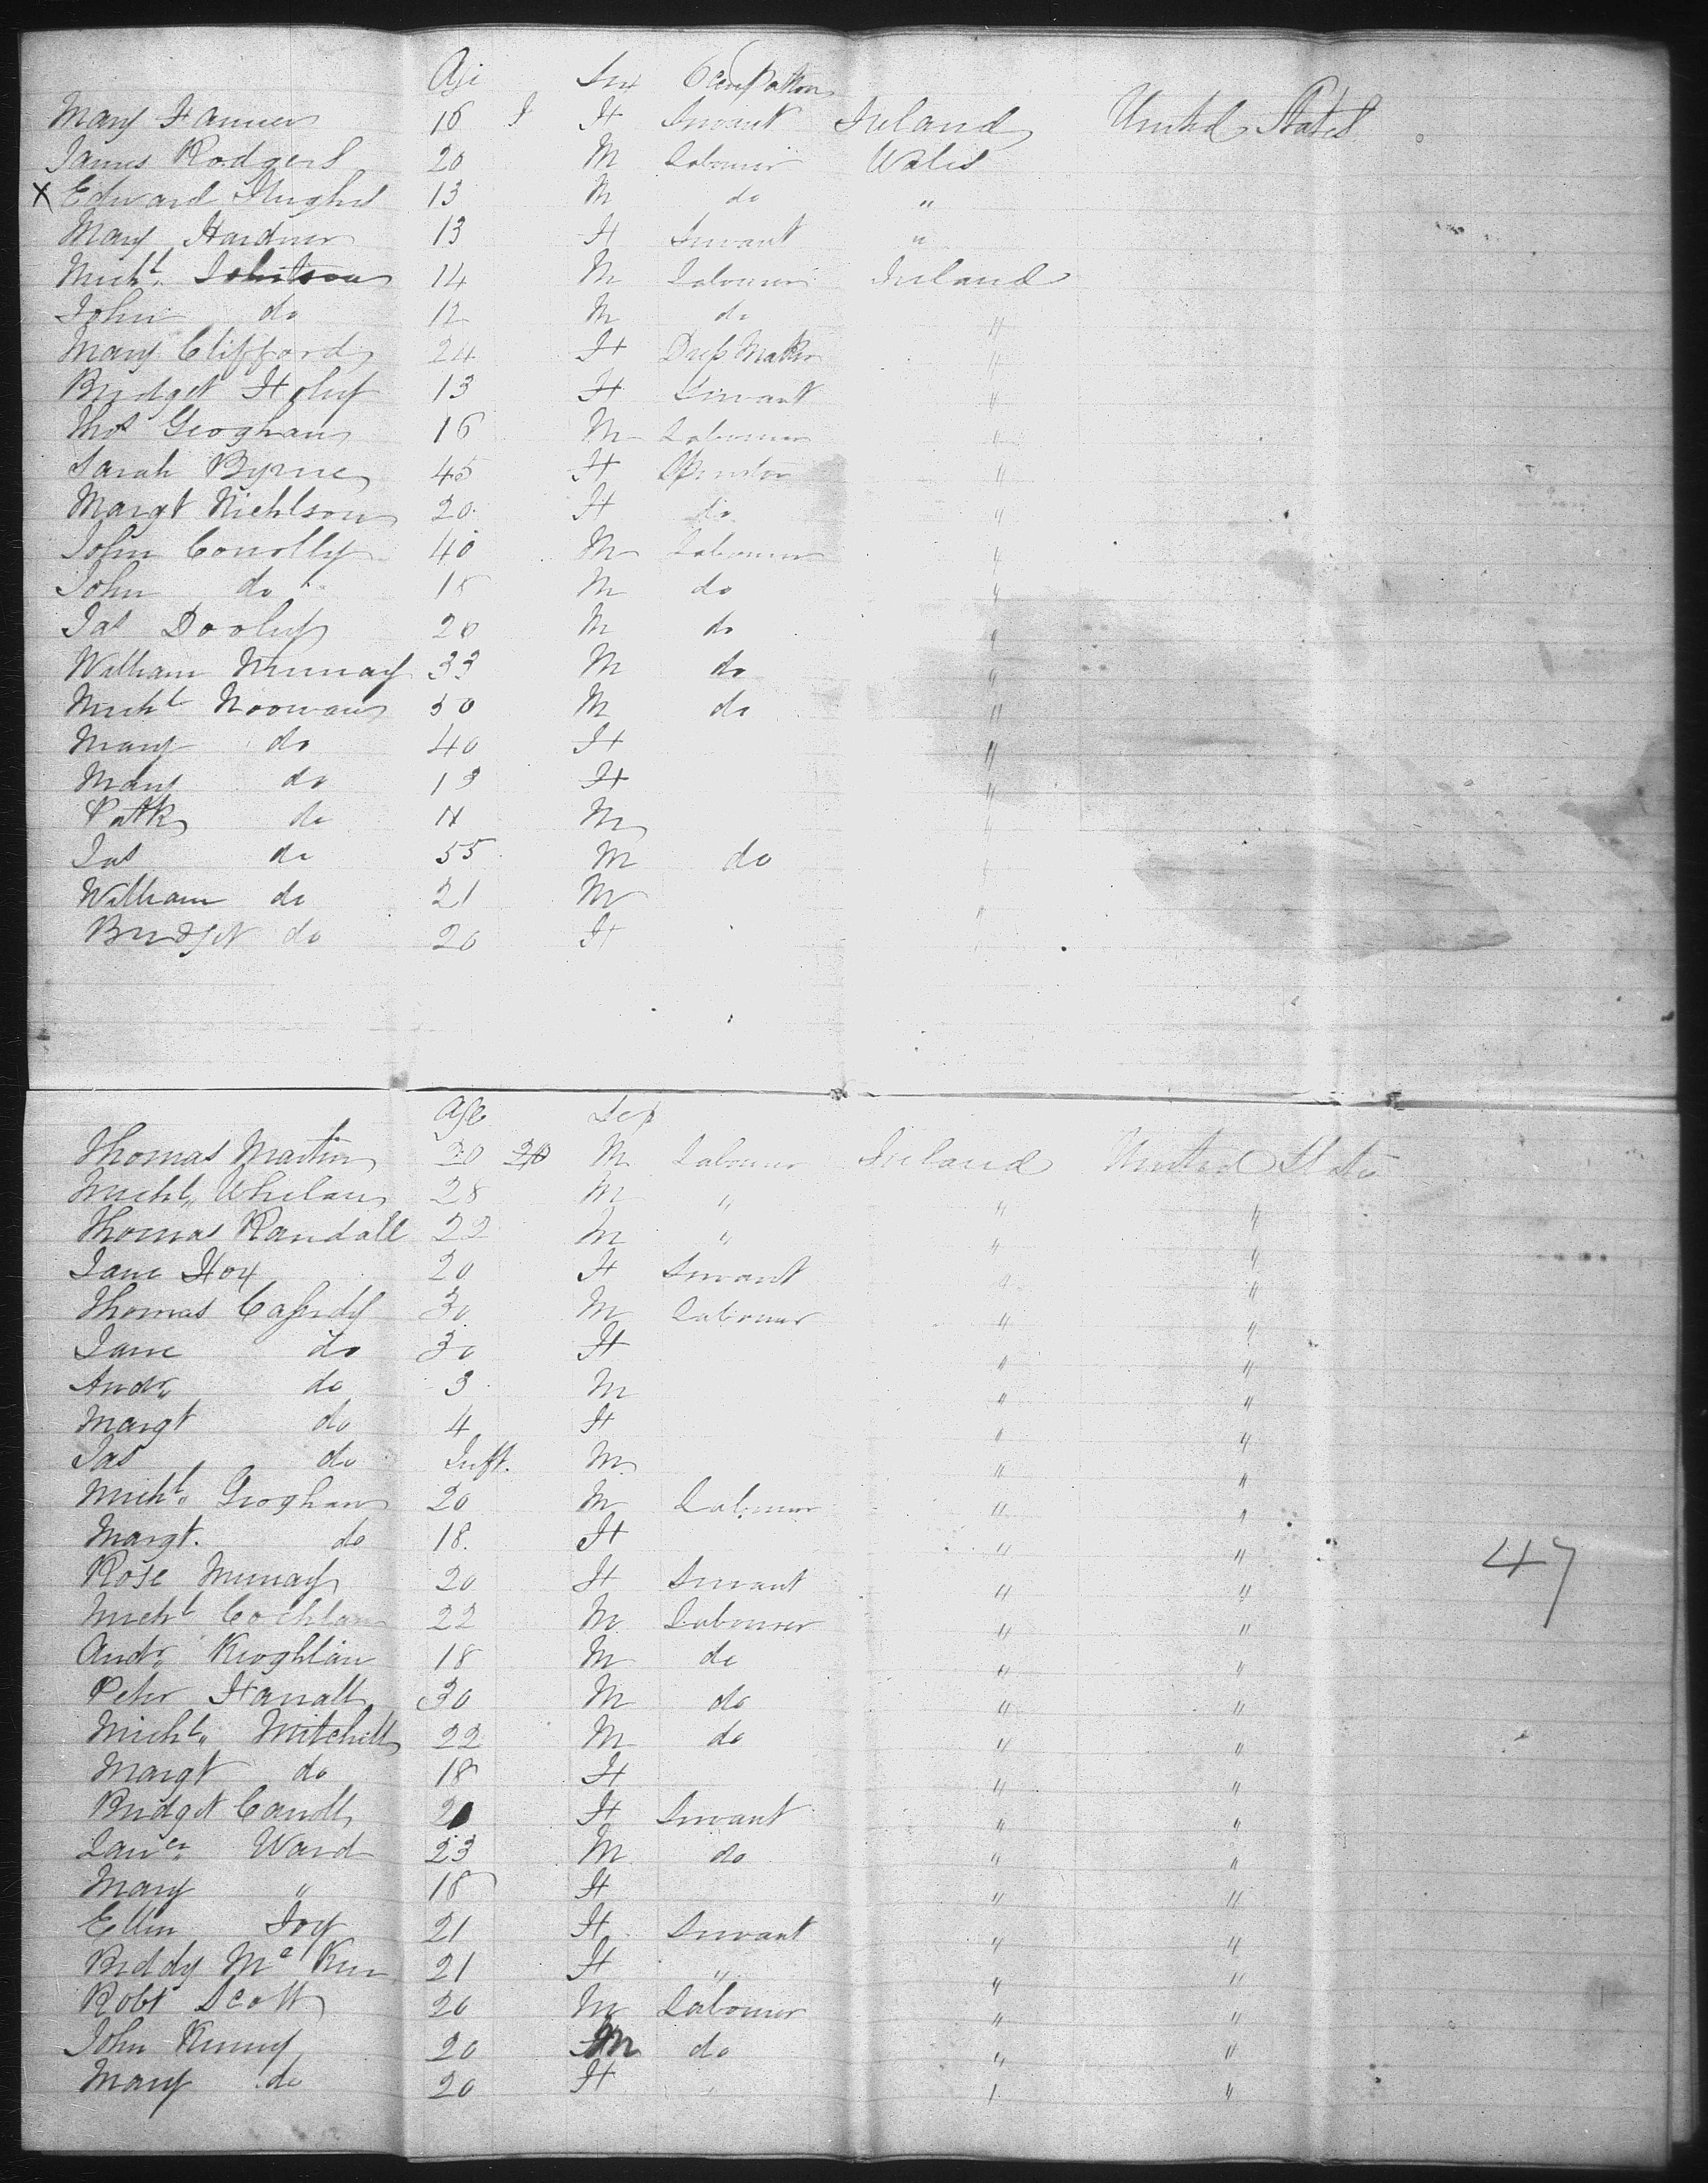 Age Sex Occupation
Mary Farmer 16 F Servant Ireland United States
James Rodgers 20 M Labourer Wales
X Edward Hughes 13 M do "
Mary Hardner 13 F Servant "
Michl. Johnson 14 M Labourer Ireland
John do 12 M do "
Mary Clifford 24 F Dress Maker "
Bridget Foley 13 F Servant "
Thos Geoghan 16 M Labourer "
Sarah Byrne 45 F Spinster "
Margt Nichlson 20 F do "
John Conolly 40 M Labourer "
John do 18 M do "
Jas Dooley 20 M do "
William Murray 33 M do "
Michl Noowan 50 M do "
Mary do 40 F "
Mary do 13 F "
Patk do 11 M "
Jas do 55 M do "
William do 21 M "
Bridget do 20 F "
Age Sex
Thomas Martin 20 20 M Labourer Ireland United States
Michl. Whelan 28 M " " "
Thomas Randall 22 M " " "
Jane Fox 20 F Servant " "
Thomas Cassidy 30 M Labourer " "
Jane do 30 F " "
Andr. do 3 M " "
Margt do 4 F " "
Jas do Inft. M " "
Michl. Geoghan 20 M Labourer " "
Margt. do 18 F " "
Rose Murray 20 F Servant " "
Michl Cochlan 22 M Labourer " "
Andr. Keoghlan 18 M do " "
Peter Farrall 30 M do " "
Michl. Mitchell 22 M do " "
Margt do 18 F " "
Bridget Caroll F Servant " "
Lance. Ward 23 M do " "
Mary " 18 F " "
Ellen Joy 21 F Servant " "
Biddy Mc Ker 21 F " " "
Robt Scott 20 M Labourer " "
John Kenny 20 M do " "
Mary do 20 F " "
47